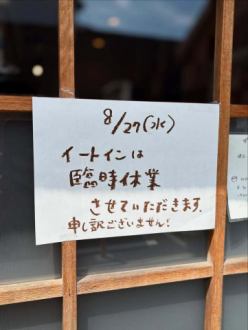 8/27(水)
イートインは
臨時休業
させていただきます。
申し訳ございません!